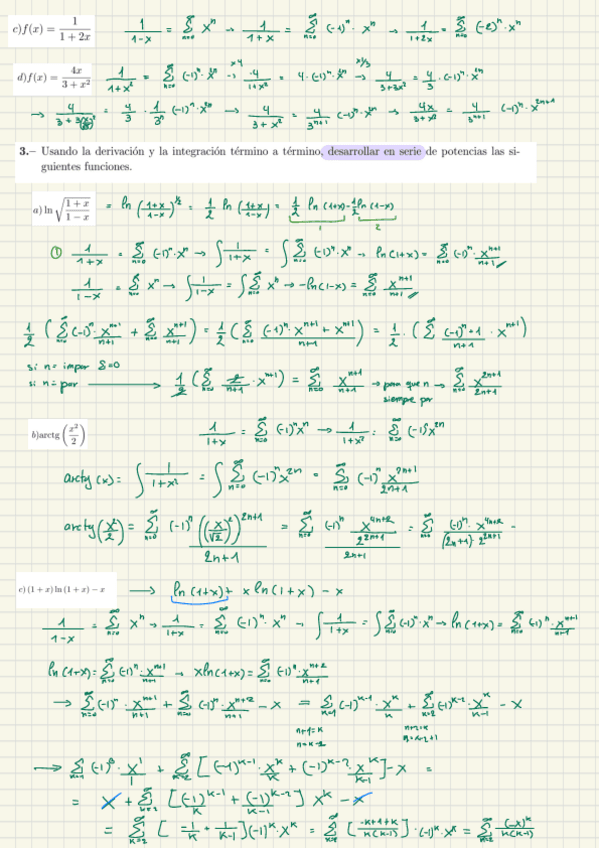 c) f(x) = 1/(1+2x)   1/(1-x) = Σ_{n=0}^∞ x^n → 1/(1+x) = Σ_{n=0}^∞ (-1)^n · x^n → 1/(1+2x) = Σ_{n=0}^∞ (-2)^n · x^n
d) f(x) = 4x/(3+x²)   1/(1+x²) = Σ_{n=0}^∞ (-1)^n · x^{2n} →^{x4} 4/(1+x²) = 4·(-1)^n · x^{2n} →^{x1/3} 4/(3+3x²) = 4/3 · (-1)^n · x^{2n}
→ = 4/3 · 1/3^n (-1)^n · x^{2n} → 4/(3+x²) = 4/3^{n+1} (-1)^n · x^{2n} → 4x/(3+x²) = 4/3^{n+1} (-1)^n · x^{2n+1}
3.– Usando la derivación y la integración término a término, desarrollar en serie de potencias las si-
guientes funciones.
a) ln √((1+x)/(1-x)) = ln ((1+x)/(1-x))^{1/2} = 1/2 ln ((1+x)/(1-x)) = 1/2 ln (1+x) - 1/2 ln (1-x)
1   2
① 1/(1+x) = Σ_{n=0}^∞ (-1)^n · x^n → ∫ 1/(1+x) = ∫ Σ_{n=0}^∞ (-1)^n · x^n → ln(1+x) = Σ_{n=0}^∞ (-1)^n · x^{n+1}/(n+1)
1/(1-x) = Σ_{n=0}^∞ x^n → ∫ 1/(1-x) = ∫ Σ_{n=0}^∞ x^n → -ln(1-x) = Σ_{n=0}^∞ x^{n+1}/(n+1)
1/2 (Σ_{n=0}^∞ (-1)^n · x^{n+1}/(n+1) + Σ_{n=0}^∞ x^{n+1}/(n+1)) = 1/2 (Σ_{n=0}^∞ ((-1)^n · x^{n+1} + x^{n+1})/(n+1)) = 1/2 · (Σ_{n=0}^∞ ((-1)^n + 1)/(n+1) · x^{n+1})
si n = impar S=0
si n = par → 1/2 (Σ_{n=0}^∞ 2/(n+1) · x^{n+1}) = Σ_{n=0}^∞ x^{n+1}/(n+1) → para que n → Σ_{n=0}^∞ x^{2n+1}/(2n+1)
siempre par
b) arctg (x²/2)   1/(1+x) = Σ_{n=0}^∞ (-1)^n x^n → 1/(1+x²) = Σ_{n=0}^∞ (-1)^n x^{2n}
arctg (x) = ∫ 1/(1+x²) = ∫ Σ_{n=0}^∞ (-1)^n x^{2n} = Σ_{n=0}^∞ (-1)^n x^{2n+1}/(2n+1)
arctg (x²/2) = Σ_{n=0}^∞ (-1)^n ((x/√2)²)^{2n+1}/(2n+1) = Σ_{n=0}^∞ (-1)^n (x^{4n+2}/2^{2n+1})/(2n+1) = Σ_{n=0}^∞ (-1)^n · x^{4n+2}/((2n+1) · 2^{2n+1})
c) (1 + x) ln (1 + x) − x → ln (1+x) + x ln (1+x) - x
1/(1-x) = Σ_{n=0}^∞ x^n → 1/(1+x) = Σ_{n=0}^∞ (-1)^n · x^n → ∫ 1/(1+x) = ∫ Σ_{n=0}^∞ (-1)^n · x^n → ln (1+x) = Σ_{n=0}^∞ (-1)^n · x^{n+1}/(n+1)
ln (1+x) = Σ_{n=0}^∞ (-1)^n · x^{n+1}/(n+1) → x ln (1+x) = Σ_{n=0}^∞ (-1)^n · x^{n+2}/(n+1)
→ Σ_{n=0}^∞ (-1)^n · x^{n+1}/(n+1) + Σ_{n=0}^∞ (-1)^n · x^{n+2}/(n+1) - x = Σ_{k=1}^∞ (-1)^{k-1} · x^k/k + Σ_{k=2}^∞ (-1)^{k-2} · x^k/(k-1) - x
n+1=k   n+2=k
→ Σ_{k=1} (-1)^0 · x^1/1 + Σ_{k=2}^∞ [(-1)^{k-1} · x^k/k + (-1)^{k-2} · x^k/(k-1)] - x =
= x + Σ_{k=2}^∞ [(-1)^{k-1}/k + (-1)^{k-2}/(k-1)] x^k - x
= Σ_{k=2}^∞ [-1/k + 1/(k-1)] (-1)^k · x^k = Σ_{k=2}^∞ [(-k+1+k)/(k(k-1))] · (-1)^k · x^k = Σ_{k=2}^∞ (-x)^k/(k(k-1))